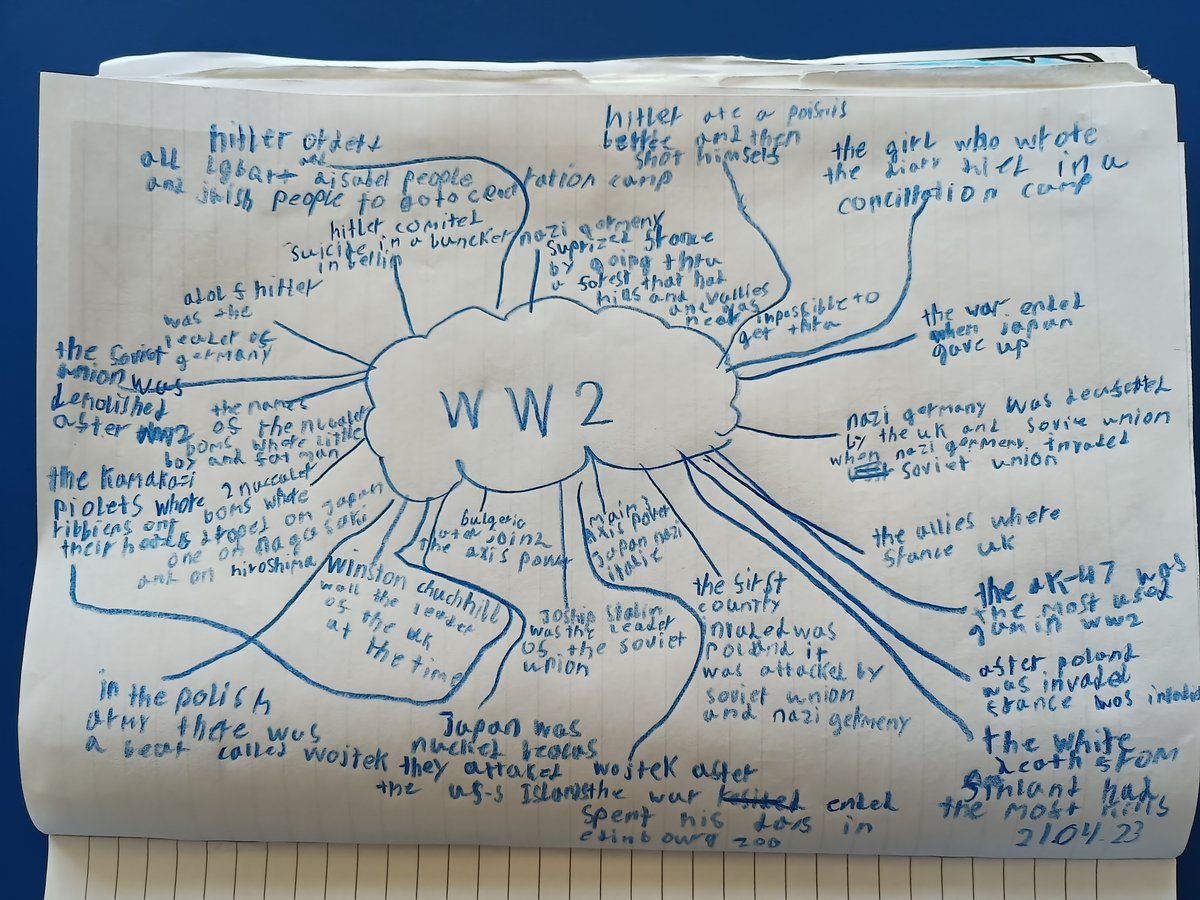 hitler orders
all lgbqt+ and disabel people
and jwish people to go to cencentration camp
hitler ate a poisnis
bettle and then
shot himself
the girl who wrote
the diary died in a
concillration camp
hitler comited
suicide in a buncker
in berlin
nazi germeny
suprized france
by going thru
a forest that had
hills and vallies
and was
near impossible to
get thru
adolf hitler
was the
leader of
germany
the war ended
when japan
gave up
the soviet
union was
demolished
after ww2
the names
of the nuculer
boms whore little
boy and fat man
nazi germany was defeated
by the uk and sovie union
when nazi germeny invaded
soviet union
WW2
the kamakazi
piolets whore
ribbiens on
their heads
2 nucculer
boms whore
droped on Japan
one on nagasaki
and on hiroshima
bulgeria
joind
the axis power
main 3
axis power
Japan nazi
italie
the allies where
france uk
winston chuchhill
was the leader
of the uk
at the time
Joship Stalin
was the leader
of the soviet
union
the first
country
invaded was
poland it
was attacked by
soviet union
and nazi germeny
the ak-47 was
the most used
gun in ww2
after poland
was invaded
france was invaded
in the polish
army there was
a bear called wojtek
Japan was
nucked becaus
they attaked
the us-s Islands
wojtek after
the war ended
spent his days in
edinbourg zoo
the white
death from
finland had
the most kills
21.04.23